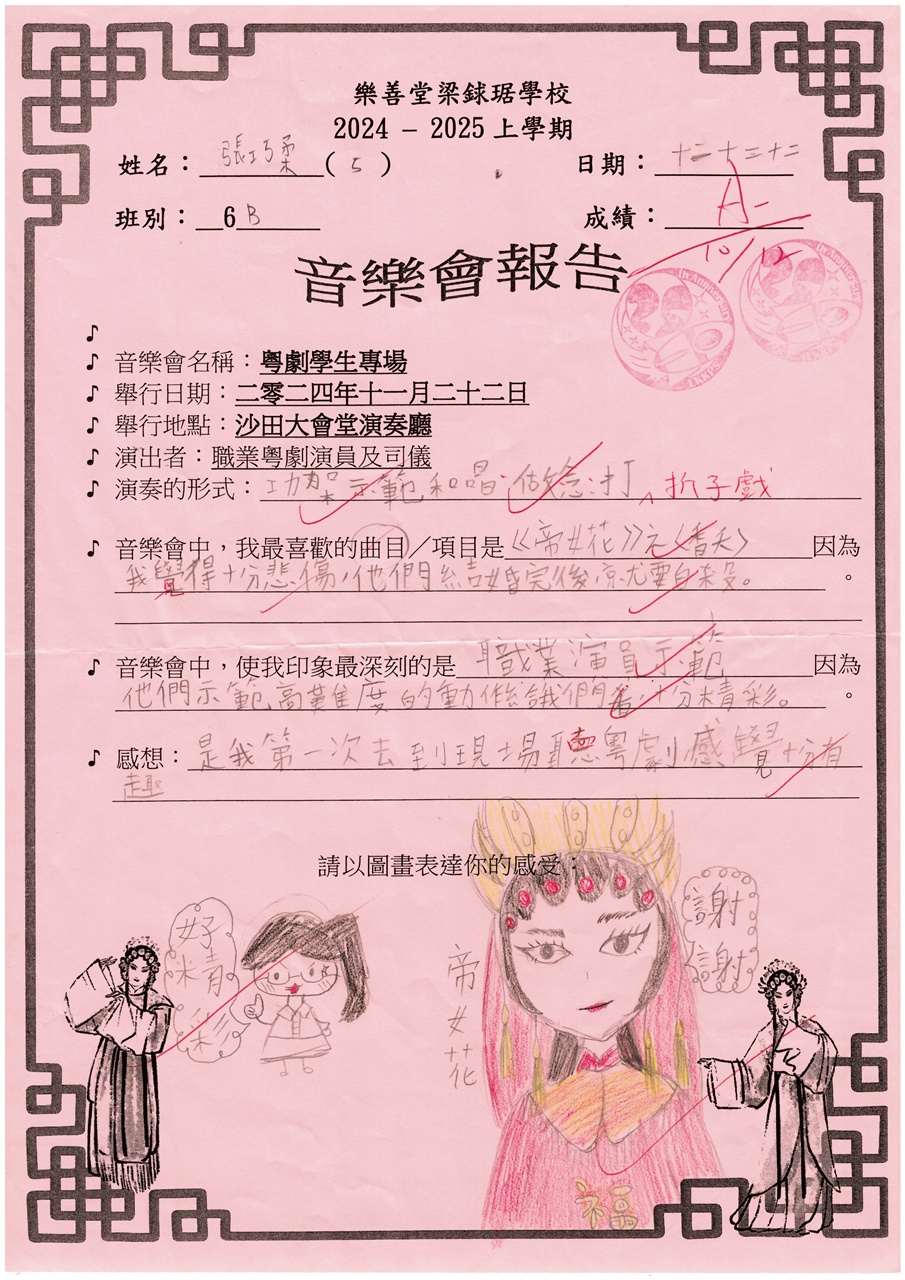 樂善堂梁銶琚學校
2024 – 2025 上學期
姓名：張巧柔(5) 日期：十二十二十二
班別：6B 成績：A-
10/12
音樂會報告
♪
♪ 音樂會名稱：粵劇學生專場
♪ 舉行日期：二零二四年十一月二十二日
♪ 舉行地點：沙田大會堂演奏廳
♪ 演出者：職業粵劇演員及司儀
♪ 演奏的形式：功架示範和唱做念打 折子戲
♪ 音樂會中，我最喜歡的曲目／項目是《帝女花》之〈香夭〉因為
我覺得十分悲傷，他們結婚完後就要自殺。 。
♪ 音樂會中，使我印象最深刻的是職業演員示範因為
他們示範高難度的動作讓我們看十分精彩。 。
♪ 感想：是我第一次去到現場聽粵劇感覺十分有
趣
請以圖畫表達你的感受：
好精彩
帝女花
謝謝
福